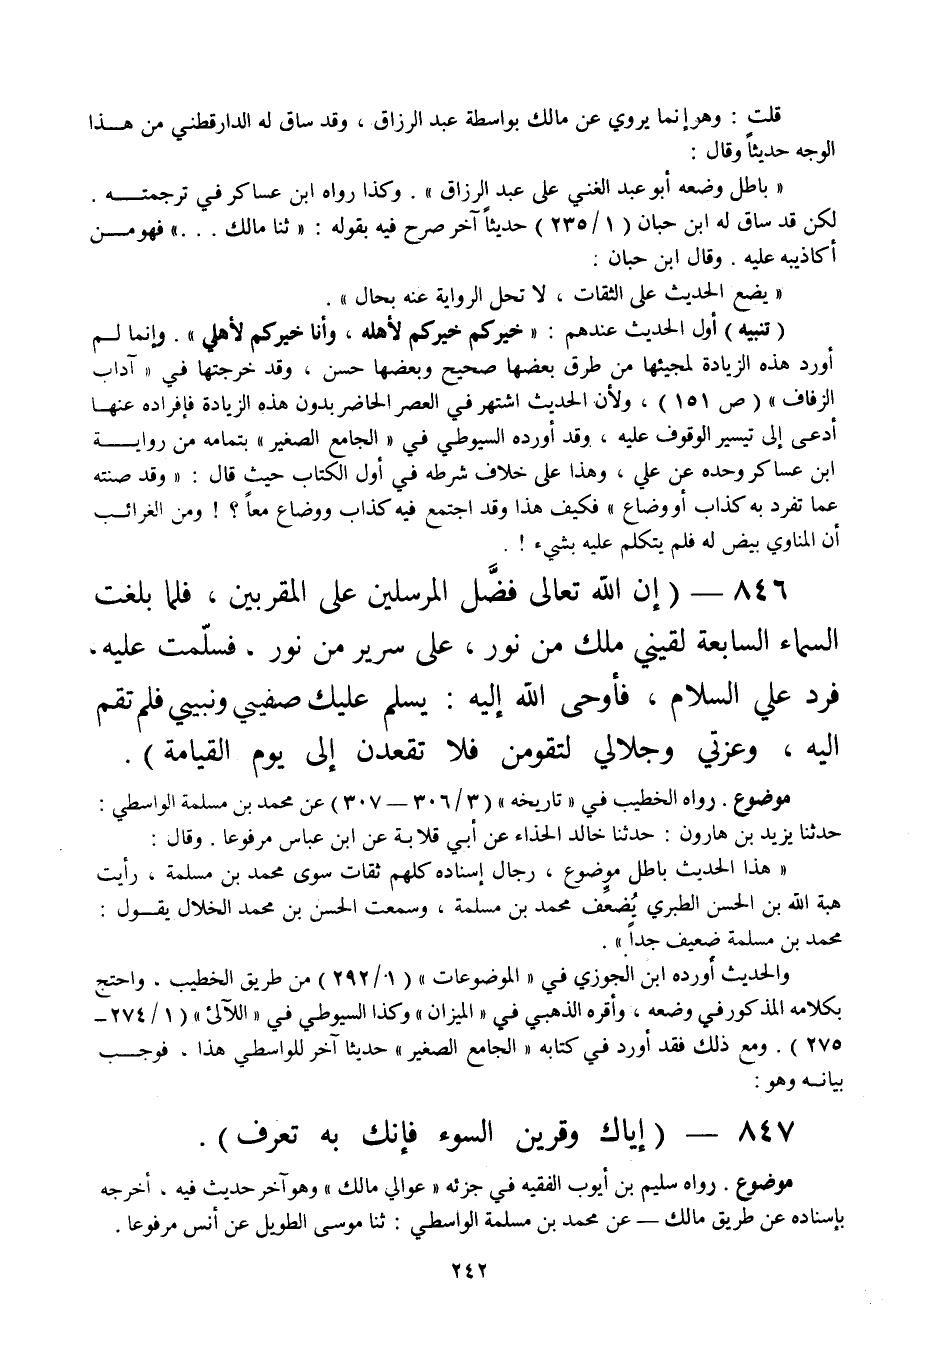 قلت : وهو إنما يروي عن مالك بواسطة عبد الرزاق ، وقد ساق له الدارقطني من هــذا
الوجه حديثاً وقال :
« باطل وضعه أبو عبد الغني على عبد الرزاق » . وكذا رواه ابن عساكر في ترجمتــه .
لكن قد ساق له ابن حبان ( ١ /٢٣٥ ) حديثاً آخر صرح فيه بقوله : « ثنا مالك . . .» فهو مــن
أكاذيبه عليه . وقال ابن حبان :
« يضع الحديث على الثقات ، لا تحل الرواية عنه بحال » .
( تنبيه ) أول الحديث عندهم : « خيركم خيركم لأهله ، وأنا خيركم لأهلي » . وإنما لــم
أورد هذه الزيادة لمجيئها من طرق بعضها صحيح وبعضها حسن ، وقد خرجتها في « آداب
الزفاف » ( ص ١٥١ ) ، ولأن الحديث اشتهر في العصر الحاضر بدون هذه الزيادة فإفراده عنهــا
أدعى إلى تيسير الوقوف عليه ، وقد أورده السيوطي في « الجامع الصغير » بتمامه من روايــة
ابن عساكر وحده عن علي ، وهذا على خلاف شرطه في أول الكتاب حيث قال : « وقد صنته
عما تفرد به كذاب أو وضاع » فكيف هذا وقد اجتمع فيه كذاب ووضاع معاً ؟ ! ومن الغرائــب
أن المناوي بيض له فلم يتكلم عليه بشيء ! .
٨٤٦ — ( إن الله تعالى فضَّل المرسلين على المقربين ، فلما بلغت
السماء السابعة لقيني ملك من نور ، على سرير من نور . فسلّمت عليه .
فرد علي السلام ، فأوحى الله إليه : يسلم عليك صفيي ونبيي فلم تقم
اليه ، وعزتي وجلالي لتقومن فلا تقعدن إلى يوم القيامة ) .
موضوع . رواه الخطيب في « تاريخه » (٣ /٣٠٦ — ٣٠٧) عن محمد بن مسلمة الواسطي :
حدثنا يزيد بن هارون : حدثنا خالد الحذاء عن أبي قلابة عن ابن عباس مرفوعا . وقال :
« هذا الحديث باطل موضوع ، رجال إسناده كلهم ثقات سوى محمد بن مسلمة ، رأيت
هبة الله بن الحسن الطبري يُضعَّف محمد بن مسلمة ، وسمعت الحسن بن محمد الخلال يقــول :
محمد بن مسلمة ضعيف جداً » .
والحديث أورده ابن الجوزي في « الموضوعات » (١ /٢٩٢ ) من طريق الخطيب . واحتج
بكلامه المذكور في وضعه ، وأقره الذهبي في « الميزان » وكذا السيوطي في « اللآلئ » ( ١ /٢٧٤ ــ
٢٧٥ ) . ومع ذلك فقد أورد في كتابه « الجامع الصغير » حديثا آخر للواسطي هذا . فوجــب
بيانــه وهو :
٨٤٧ — ( إياك وقرين السوء فإنك به تعرف ) .
موضوع . رواه سليم بن أيوب الفقيه في جزئه « عوالي مالك » وهو آخر حديث فيه . أخرجه
بإسناده عن طريق مالك — عن محمد بن مسلمة الواسطي : ثنا موسى الطويل عن أنس مرفوعا .
٢٤٢